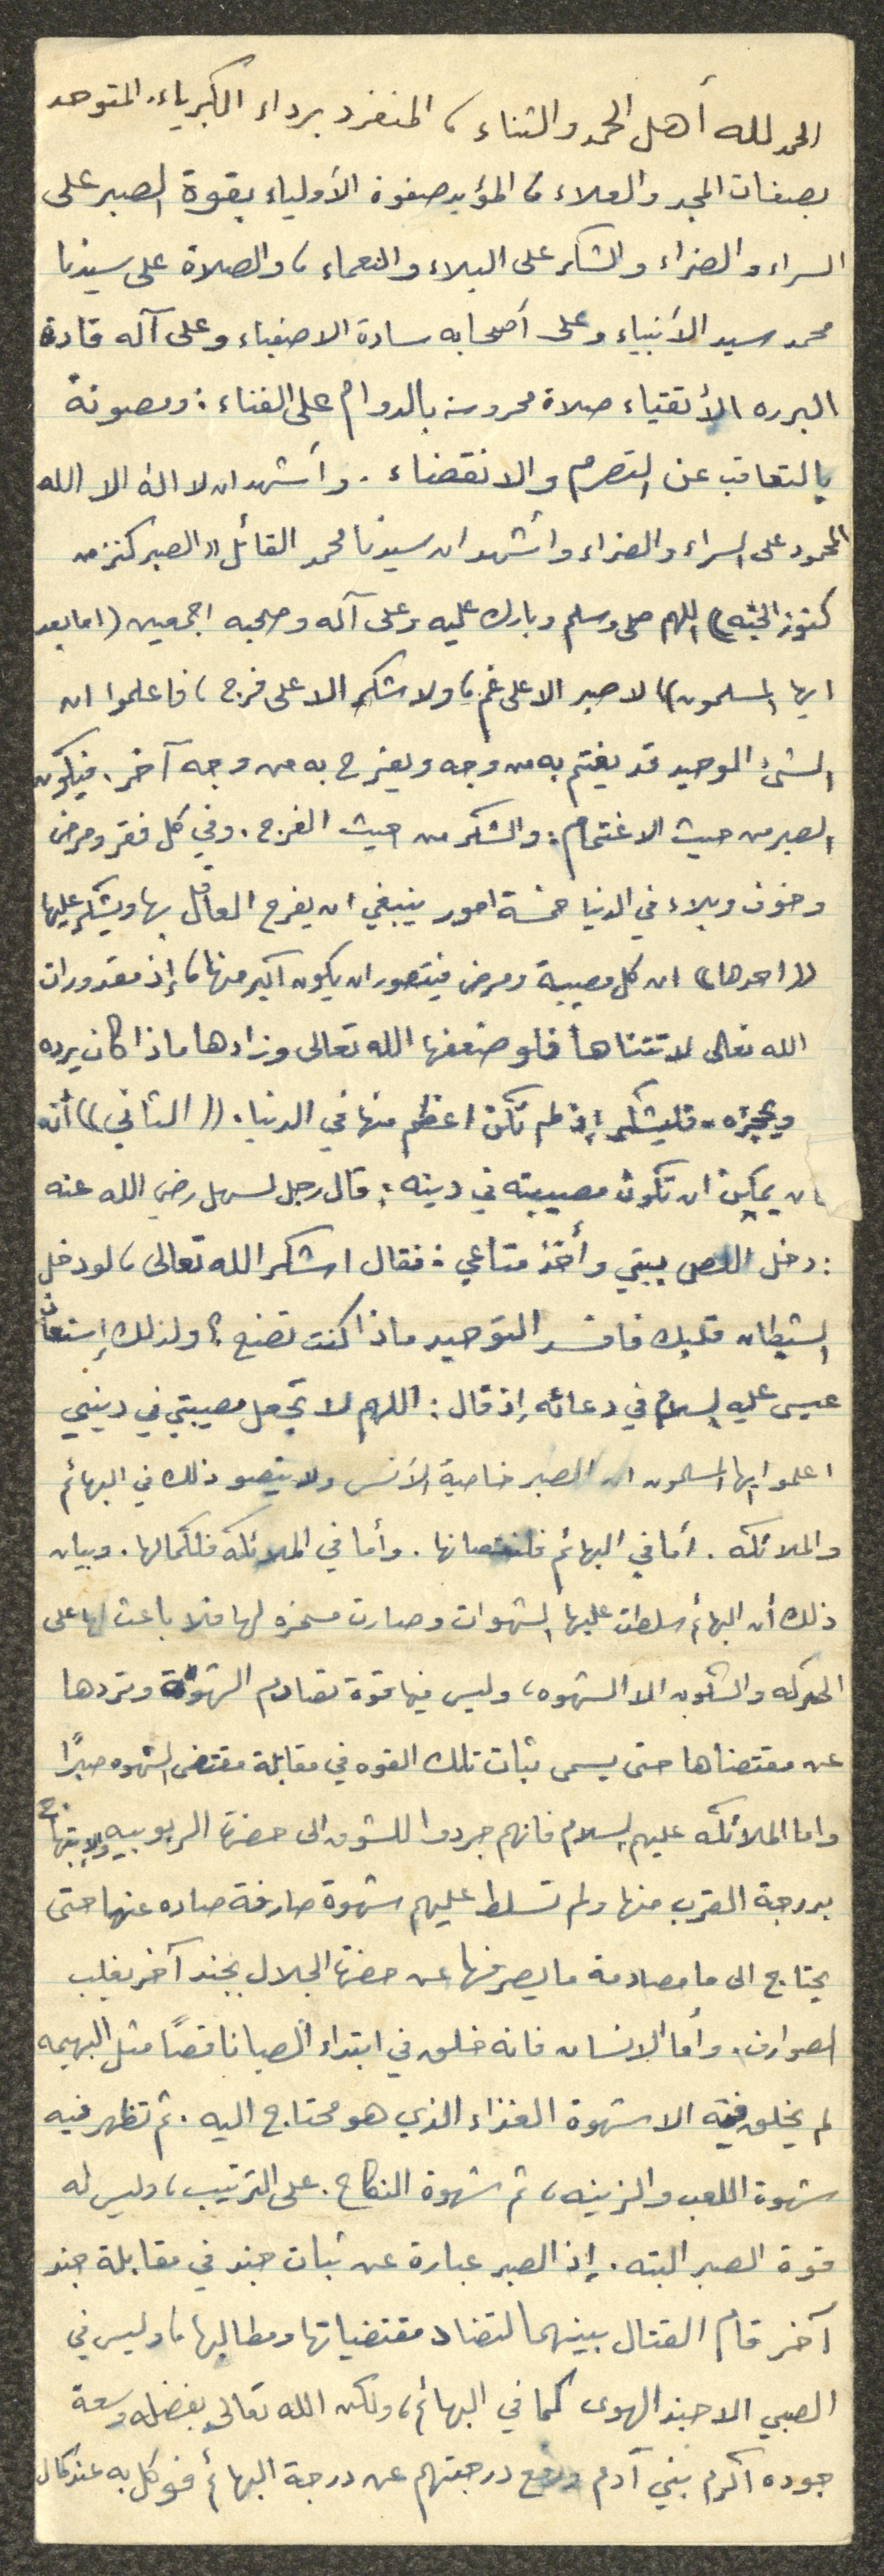 الحمد لله أهل الحمد والثناء، المنفرد برداء الكبرياء. المتوحد
بصفات المجد والعلاء، المؤيد صفوة الأولياء بقوة الصبر على
السراء والضراء والشكر على البلاء والنعماء، والصلاة على سيدنا
محمد سيد الأنبياء وعلى أصحابه سادة الاصفياء وعلى آله قادة
البرره الأتقياء صلاة محروسة بالدوام على الفناء: ومصونة
بالتعاقب عن التصرم والانقضاء. وأشهد ان لا اله الا الله
المحمود على السراء والضراء وأشهد ان سيدنا محمد القائل ((الصبر كنز من
كنوز الجنه)) اللهم صلى وسلم وبارك عليه وعلى آله وصحبه اجمعين (اما بعد
ايها المسلمون)) لا صبر الا على غم، ولا شكر الا على فرح، فاعلموا ان
الشئ الموحيد قد يغتم به من وجه ويفرح به من وجه آخر. فيكون
الصبر من حيث الاغتمام: والشكر من حيث الفرح. وفي كل فقر ومرض
وخوف وبلاء في الدنيا خمسة امور ينبغي ان يفرح العاقل بها ويشكر عليها
((احدها)) ان كل مصيبة ومرض فيتصور ان يكون اكبر منها، إذ مقدورات
الله تعالى لا تتناها فلو ضعفها الله تعالى وزادها ماذا كان يرده
ويحجزه. فليشكر إذ لم تكن اعظم منها في الدنيا. ((الثاني)) أنه
ان يمكن ان تكون مصيبته في دينه: قال رجل لسهل رضي الله عنه
: دخل اللص بيتي وأخذ متاعي: فقال اشكر الله تعالى، لو دخل
الشيطان قلبك فافسد التوحيد ماذا كنت تصنع؟ ولذلك إستعاذ
عيسى عليه السلام في دعائه إذ قال: اللهم لا تجعل مصيبتي في ديني
اعلموا ايها المسلمون ان الصبر خاصية الأنس ولا يتصو ذلك في البهائم
والملائكه. أما في البهائم فلنقصانها. وأما في الملائكة فلكمالها. وبيان
ذلك أن البهائم سلطت عليها الشهوات وصارت مسخره لها فلا باعث لها على
الحركه والسكون الا الشهوه، وليس فيها قوة تصادم الشهوة وتردها
عن مقتضاها حتى يسمى ثبات تلك القوه في مقابلة مقتضى الشهوه صبرًا
واما الملائكه عليهم السلام فانهم جردوا للشوق الى حضرة الربوبيه والإبتهاج
بدرجة القرب منها ولم تسلط عليهم شهوة صارفة صاده عنها حتى
يحتاج الى ما مصادمة ما يصرفها عن حضرة الجلال بجند آخر يغلب
الصوارف. وأما الانسان فانه خلق في ابتداء الصبا ناقصًا مثل البهيمه
لم يخلق فيه الا شهوة الغذاء الذي هو محتاج اليه. ثم تظهر فيه
شهوة اللعب والزينه، ثم شهوة النكاح. على الترتيب، وليس له
قوة الصبر البته. إذ الصبر عبارة عن ثبات جند في مقابلة جند
آخر قام القتال بينهما لتضاد مقتضياتها ومطالبها، وليس في
الصبي الا جند الهوى كما في البهائم، ولكن الله تعالى بفضله وسعة
جوده اكرم بني آدم ورفع درجتهم عن درجة البهائم فوكل به عند كمال